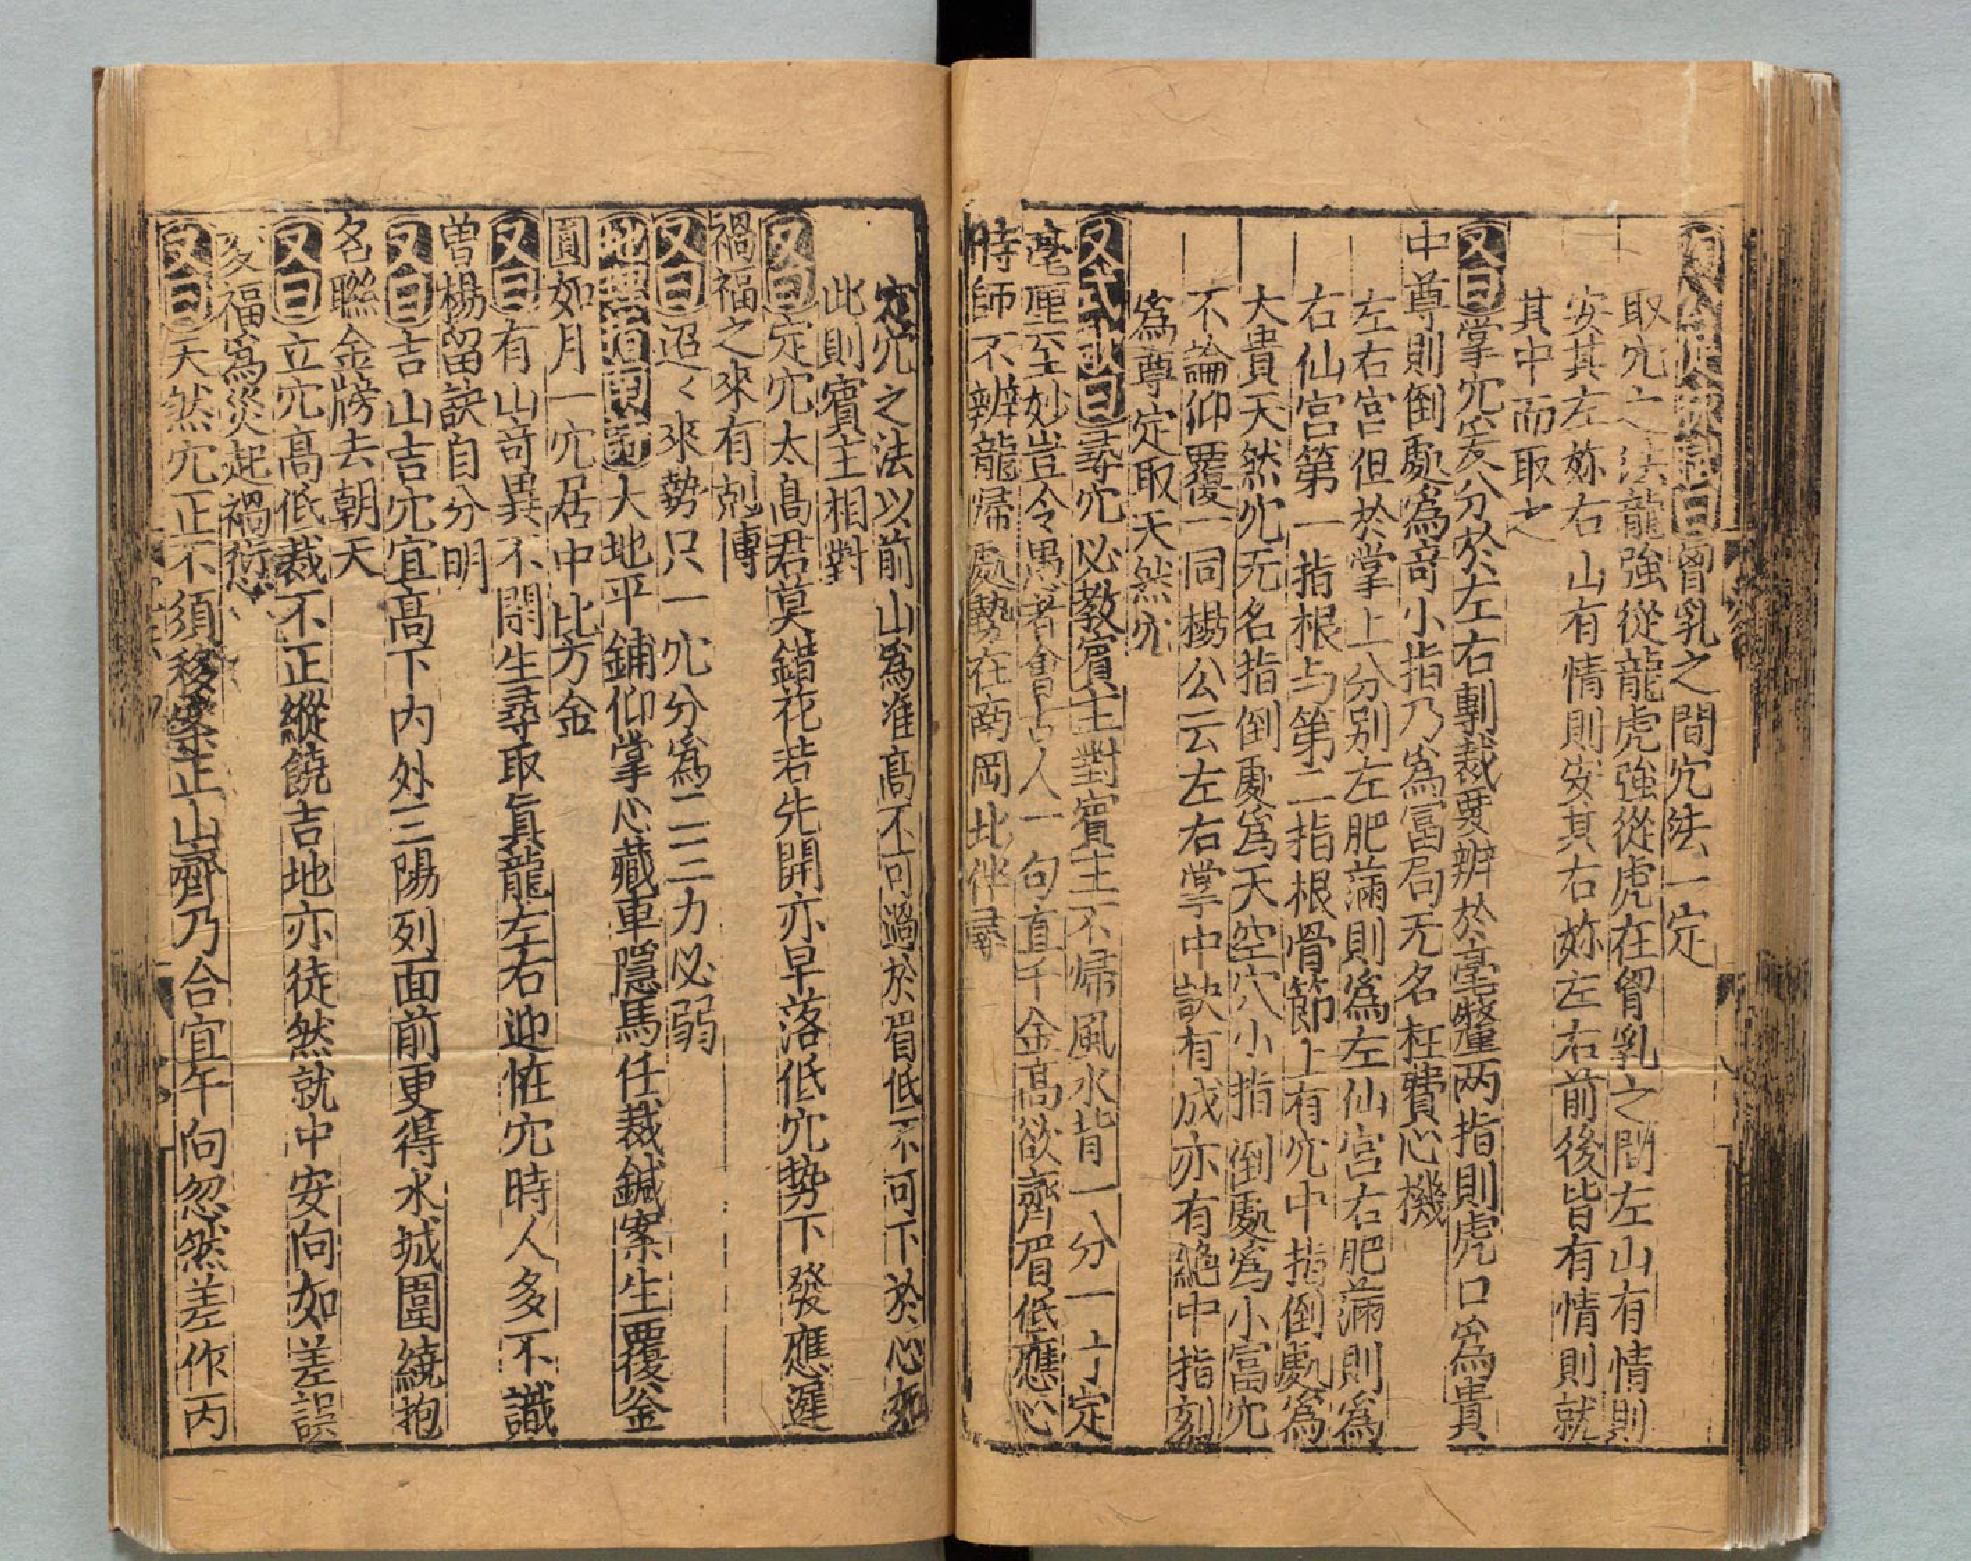 曰胷乳之間穴法一定
取穴之法龍強從龍虎強從虎在胷乳之間左山有情則
安其左妳右山有情則安其右妳左右前後皆有情則就
其中而取之
又曰掌穴安分於左右剸裁要辨於毫釐两指則虎口為貴
中尊則倒處為竒小指乃為富局无名枉費心機
左右宫但於掌上分别左肥滿則為左仙宫右肥滿則為
右仙宫第一指根与第二指根骨節上有穴中指倒處為
大貴天然穴无名指倒處為天空穴小指倒處為小富穴
不論仰覆一同楊公云左右掌中訣有成亦有絶中指刻
為尊定取天然穴
又 曰尋穴必教賓主對賓主不歸風水背一分一寸定
毫厘玄妙豈令愚者會古人一句直千金高欲齊眉低應心
時師不辨龍歸處勢在高岡此伴尋
定穴之法以前山為准高不可過於眉低不可下於心如
此則賓主相對
又曰定穴太高君莫錯花若先開亦早落低穴势下發應遲
禍福之來有剋博
又曰迢〻來勢只一穴分為二三力必弱
地理指南 大地平鋪仰掌心藏車隱馬任裁鍼案生覆釜
圓如月一穴居中比方金
又曰有山竒異不閑生尋取真龍左右迎怪穴時人多不識
曽楊留訣自分明
又曰吉山吉穴宜高下内外三陽列面前更得水城圍繞抱
名聮金牓去朝天
又曰立穴高低裁不正縱饒吉地亦徒然就中安向如差誤
変福為災起禍愆
又曰天然穴正不須移案正山齊乃合宜午向忽然差作丙